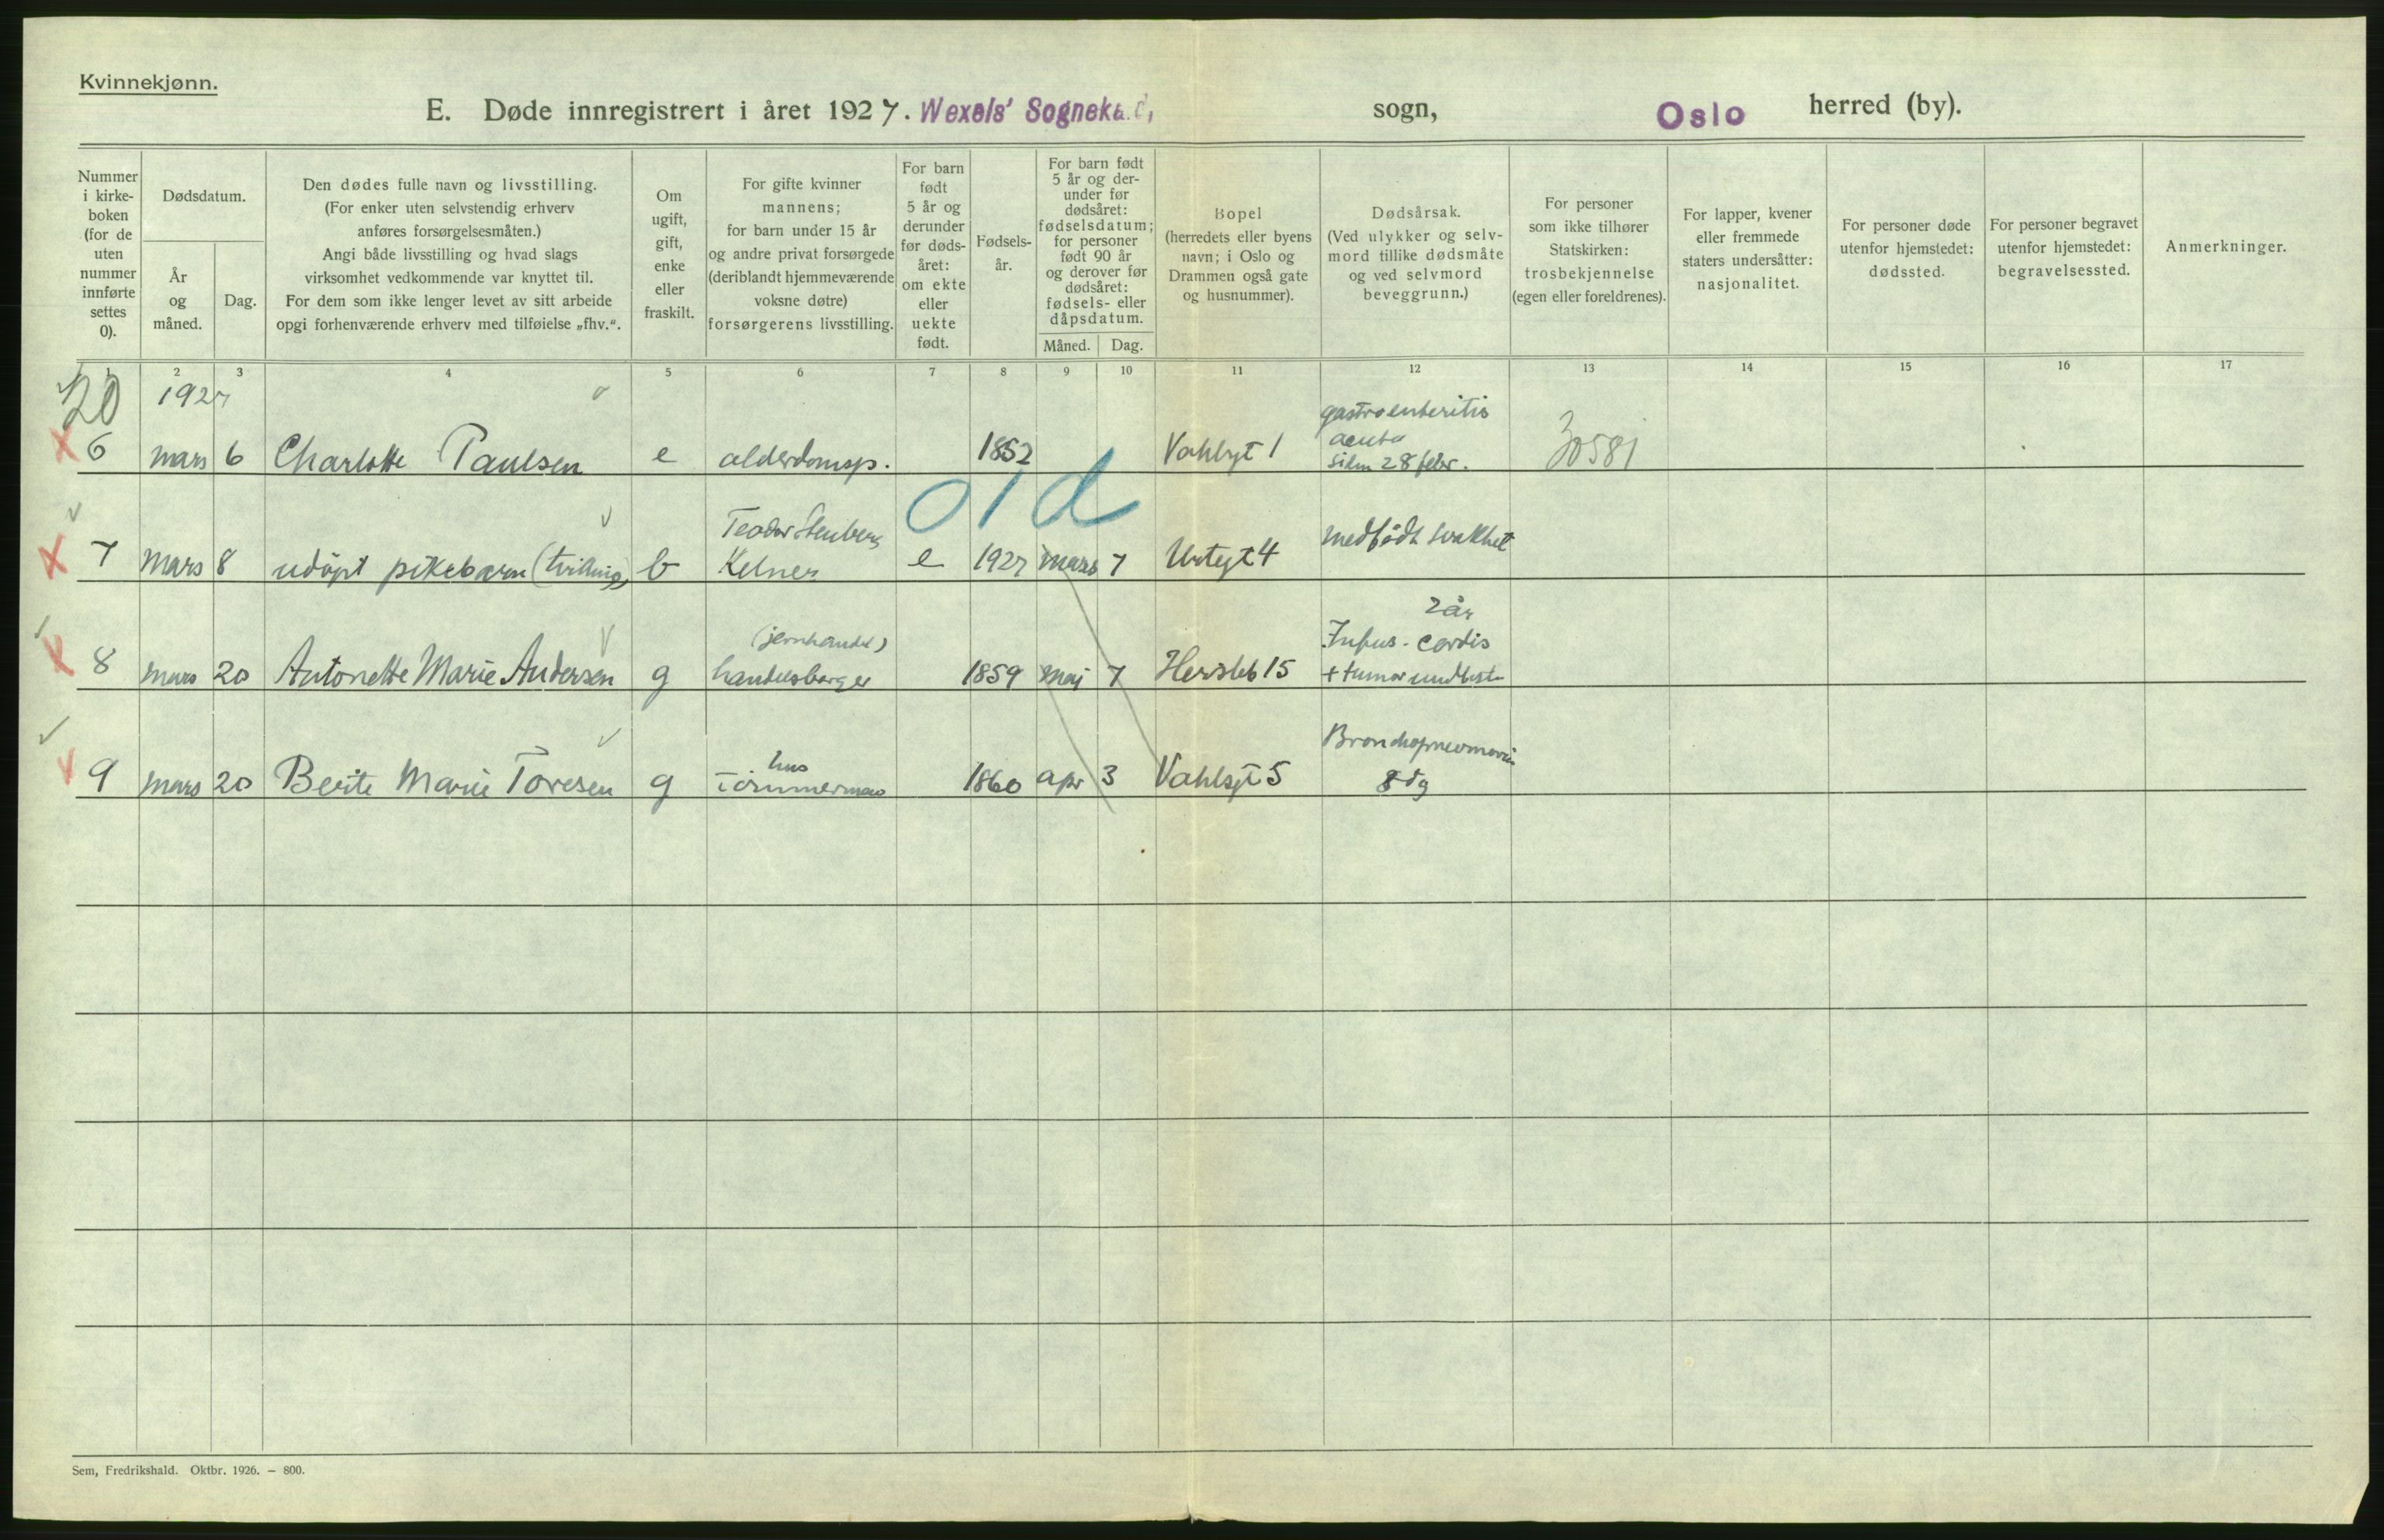 Kvinnekjønn.
E. Døde innregistrert i året 1927. Wexels' Sognekald, sogn, Oslo herred (by).
Nummer i kirke- boken (for de uten nummer innførte settes 0).
Dødsdatum.
År og måned.
Dag.
Den dødes fulle navn og livsstilling.
(For enker uten selvstendig erhverv
anføres forsørgelsesmåten.)
Angi både livsstilling og hvad slags
virksomhet vedkommende var knyttet til.
For dem som ikke lenger levet av sitt arbeide
opgi forhenværende erhverv med tilføielse „fhv.“.
Om ugift, gift, enke eller fraskilt.
For gifte kvinner
mannens;
for barn under 15 år
og andre privat forsørgede
(deriblandt hjemmeværende
voksne døtre)
forsørgerens livsstilling.
For barn født 5 år og derunder før døds- året: om ekte eller uekte født.
Fødsels- år.
For barn født
5 år og der-
under før
dødsåret:
fødselsdatum;
for personer
født 90 år
og derover før
dødsåret:
fødsels- eller
dåpsdatum.
Måned. Dag.
Bopel
(herredets eller byens
navn; i Oslo og
Drammen også gate
og husnummer).
Dødsårsak.
(Ved ulykker og selv-
mord tillike dødsmåte
og ved selvmord
beveggrunn.)
For personer
som ikke tilhører
Statskirken:
trosbekjennelse
(egen eller foreldrenes).
For lapper, kvener
eller fremmede
staters undersåtter:
nasjonalitet.
For personer døde
utenfor hjemstedet:
dødssted.
For personer begravet
utenfor hjemstedet:
begravelsessted.
Anmerkninger.
1 2 3 4 5 6 7 8 9 10 11 12 13 14 15 16 17
20 1927
gastroenteritis
acuta
6 mars 6 Charlotte Paulsen e alderdomsp. 1852 Vahlsgt 1 siden 28 febr. 30581
Teodor Stenberg
7 mars 8 udöpt pikebarn (tvilling) b Kelner e 1927 mars 7 Urtegt 4 medfödt svakhet
2 år
(jernhandel) cordis
8 mars 20 Antonette Marie Andersen g handelsborger 1859 maj 7 Herslebs 15 + tumor
hus Bronchopneumoni
9 mars 20 Berte Marie Toresen g Tömmerman 1860 apr 3 Vahlsgt 5 8 dg
Sem, Fredrikshald. Oktbr. 1926. — 800.